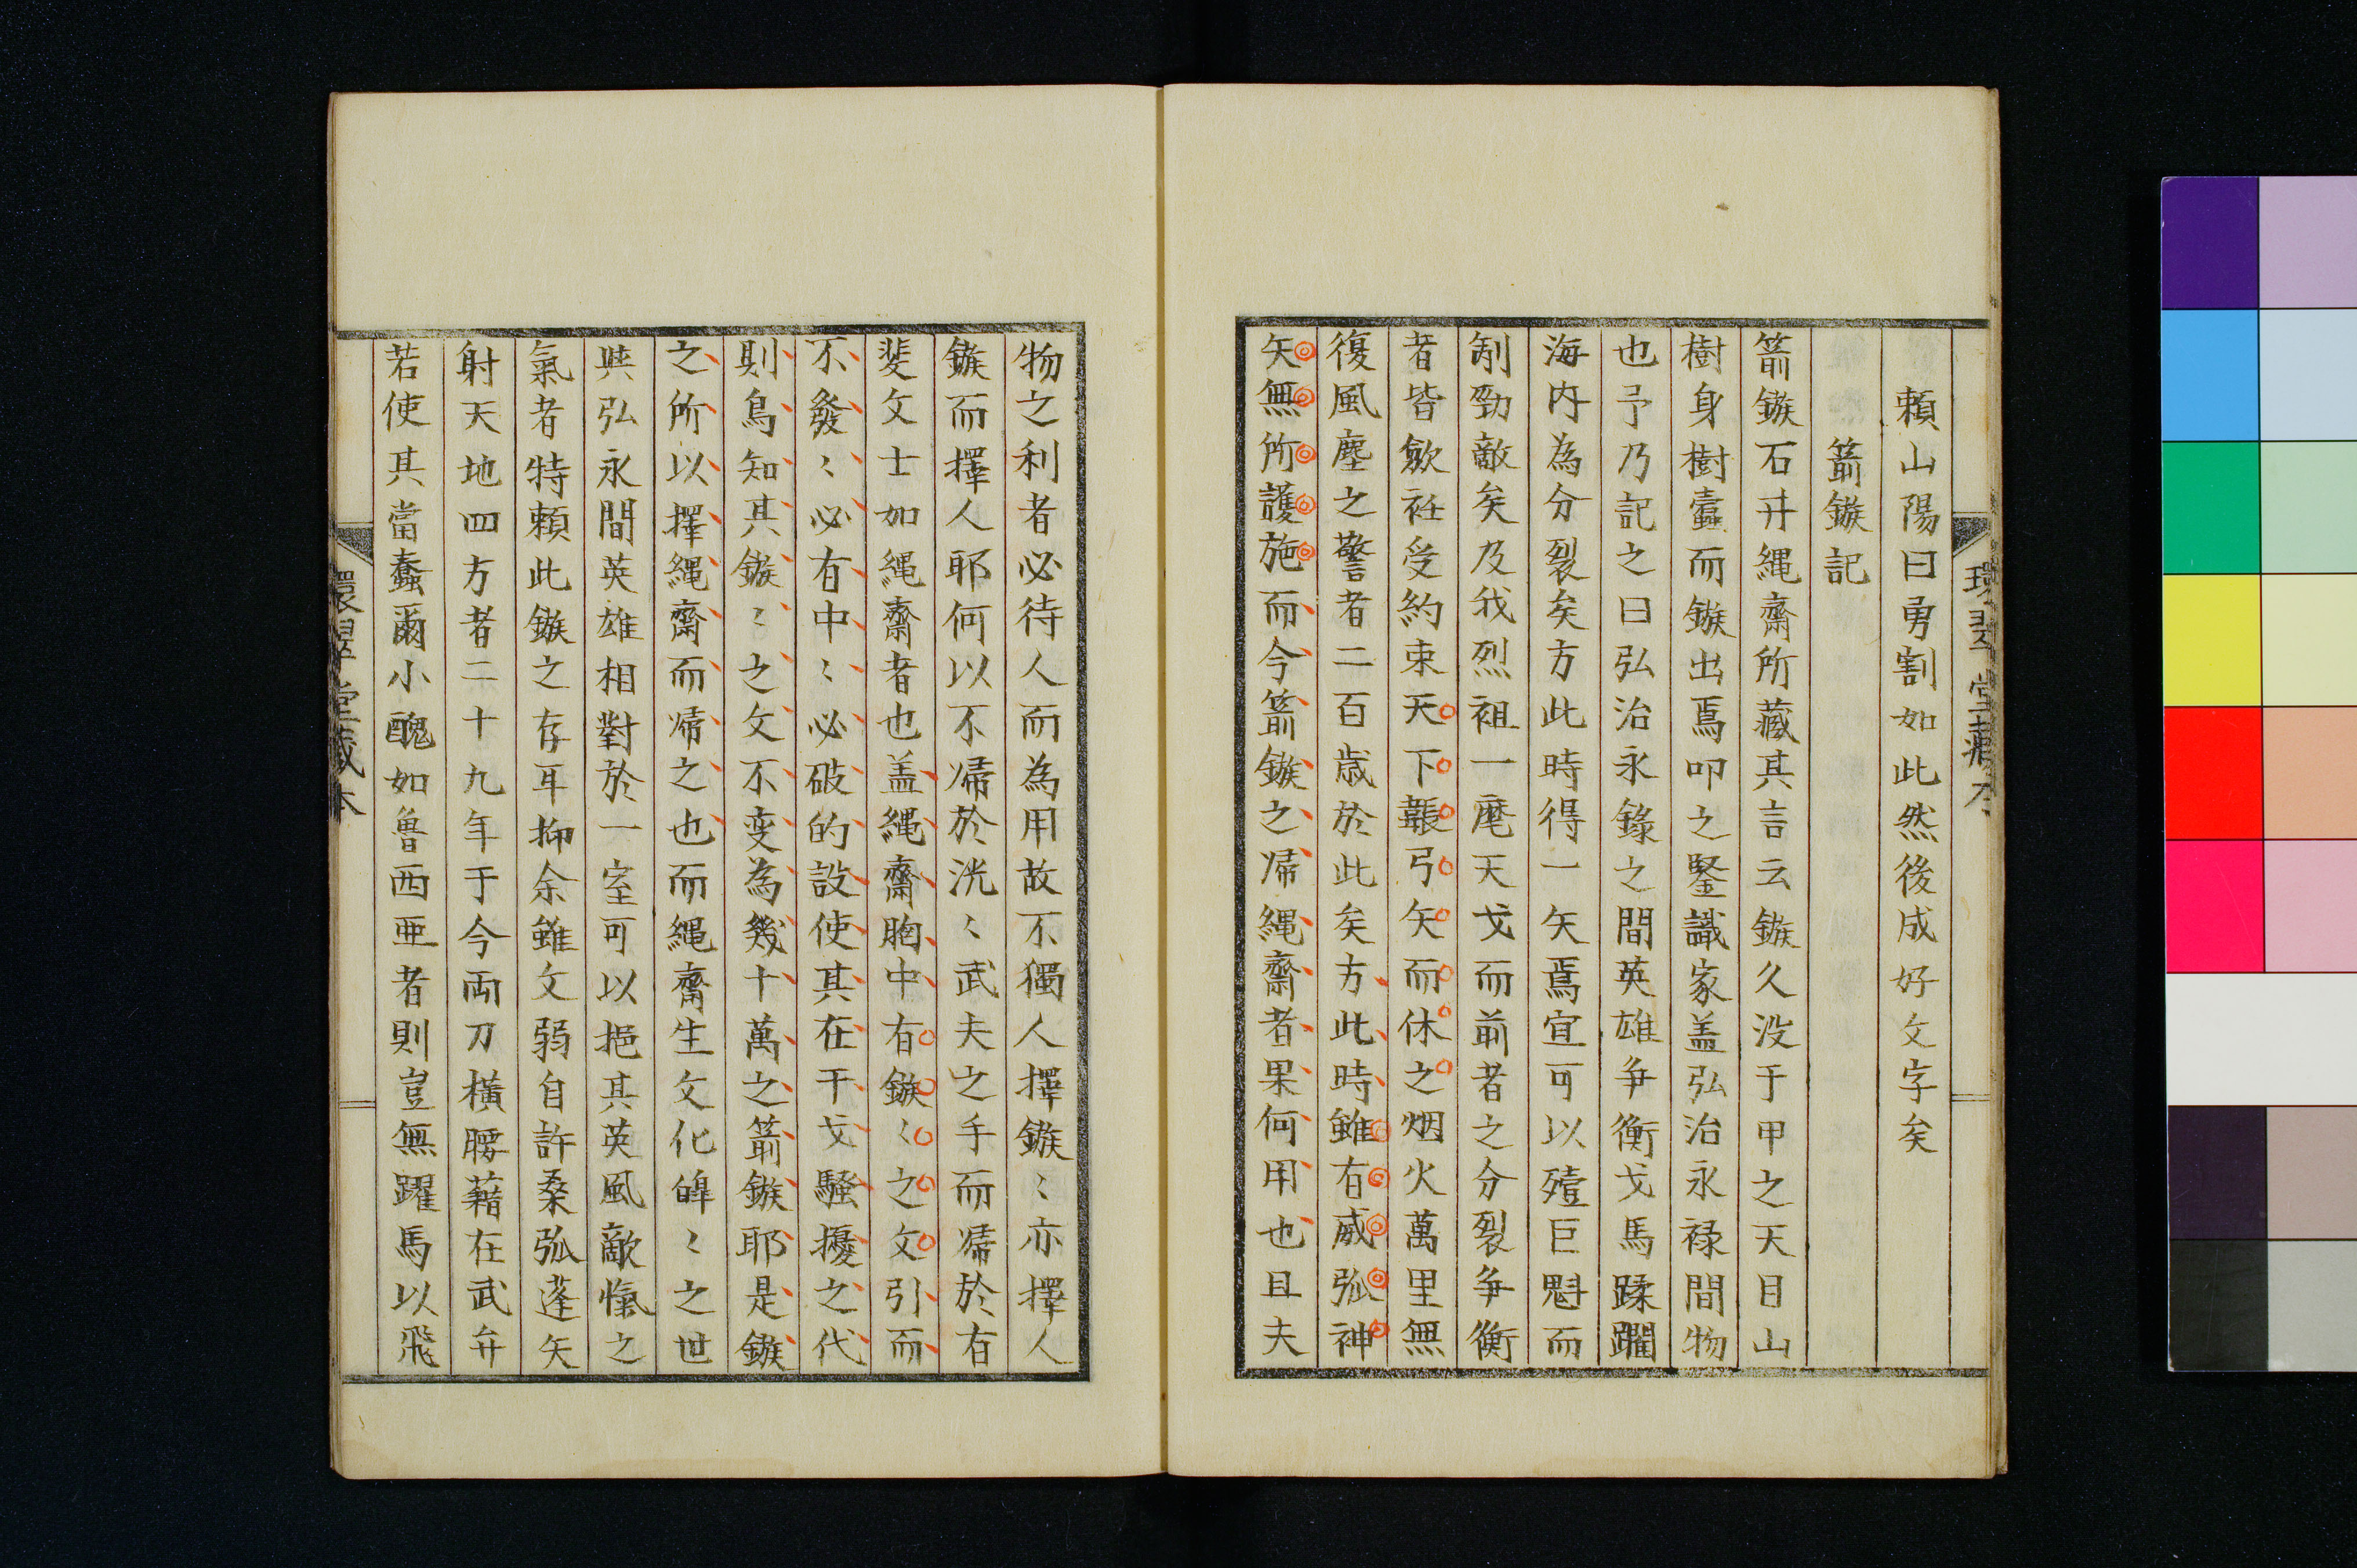 賴山陽曰勇割如此然後成好文字矣
箭鏃記
箭鏃石井縄齋所藏其言云鏃久没于甲之天目山
樹身樹蠹而鏃出焉叩之鑒識家盖弘治永禄間物
也予乃記之曰弘治永錄之間英雄争衡戈馬蹂躙
海内為分裂矣方此時得一矢焉宜可以殪巨魁而
剬勁敵矣及我烈祖一麾天戈而前者之分裂争衡
者皆歛衽受約束天下韔弓矢而休之烟火萬里無
復風塵之警者二百歳於此矣方此時雖有威弧神
矢無所護施而今箭鏃之帰縄齋者果何用也且夫
物之利者必待人而為用故不獨人擇鏃〻亦擇人
鏃而擇人耶何以不帰於洸〻武夫之手而帰於有
斐文士如縄齋者也盖縄齋胸中有鏃〻之文引而
不發〻必有中〻必破的設使其在干戈騷擾之代
則烏知其鏃〻之文不变為幾十萬之箭鏃耶是鏃
之所以擇縄齋而帰之也而縄齋生文化皥〻之世
與弘永間英雄相對於一室可以挹其英風敵愾之
氣者特頼此鏃之存耳抑余雖文弱自許桑弧蓬矢
射天地四方者二十九年于今両刀橫腰藉在武弁
若使其當蠢爾小醜如魯西亜者則豈無躍馬以飛
環翠堂藏本
環翠堂藏本